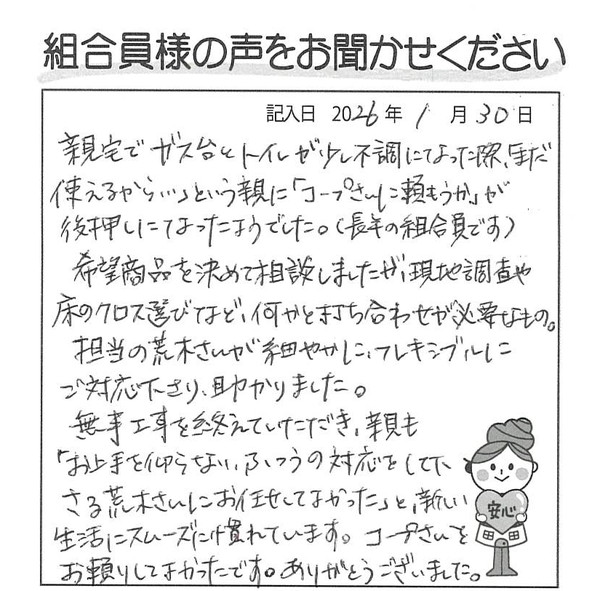 組合員様の声をお聞かせください
記入日 2026年 1月30日
親宅でガス台とトイレが少し不調になった際、「まだ
使えるから…」という親に「コープさんに頼もうか」が
後押しになったようでした。(長年の組合員です)
希望商品を決めて相談しましたが、現地調査や
床のクロス選びなど、何かと打ち合わせが必要なもの。
担当の荒木さんが細やかに、フレキシブルに
ご対応下さり、助かりました。
無事工事を終えていただき、親も
「お上手を仰らない、ふつうの対応をして下
さる荒木さんにお任せしてよかった」と、新しい
生活にスムーズに慣れています。コープさんを
お頼りしてよかったです。ありがとうございました。
安心